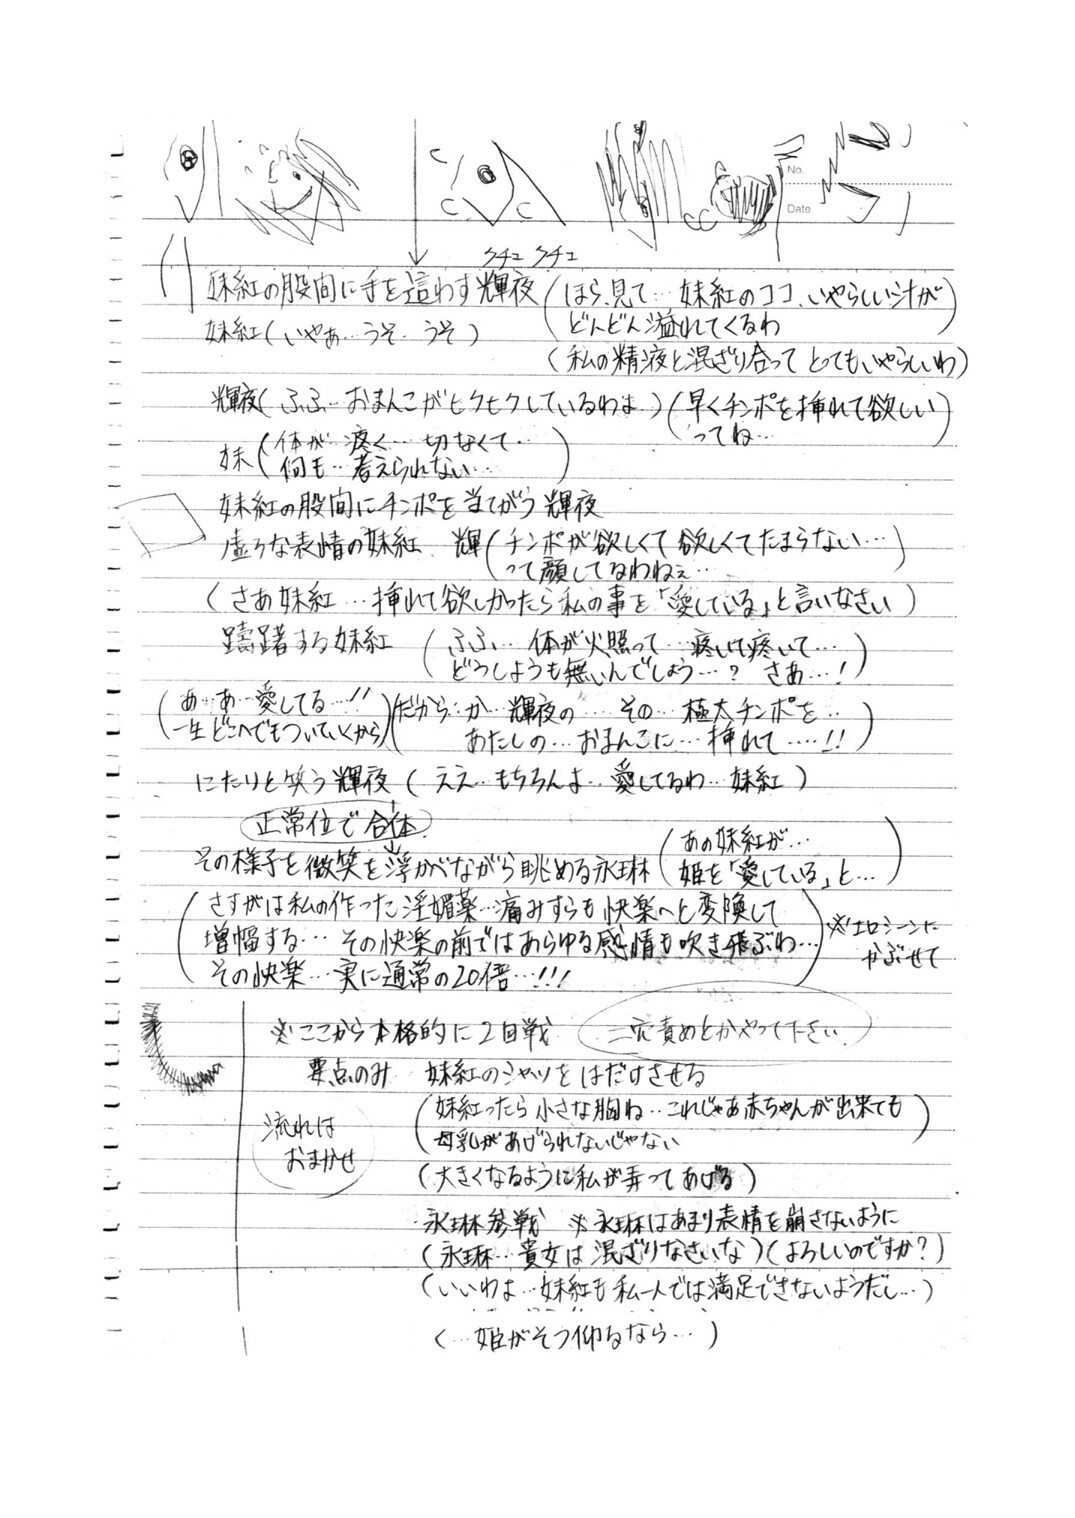 No.
Date
クチュ クチュ
妹紅の股間に手を這わす輝夜(ほら、見て…妹紅のココ、いやらしい汁が
どんどん溢れてくるわ)
妹紅(いやぁ…うそ…うそ)
(私の精液と混ざり合って とってもいやらしいわ)
輝夜(ふふ…おまんこがヒクヒクしているわよ)(早くチンポを挿れて欲しい
ってね…)
妹(体が…疼く…切なくて…
何も…考えられない…)
妹紅の股間にチンポを当てがう輝夜
虚ろな表情の妹紅 輝(チンポが欲しくて欲しくてたまらない…
って顔してるわねぇ…)
(さあ妹紅…挿れて欲しかったら私の事を「愛している」と言いなさい)
躊躇する妹紅 (ふふ…体が火照って…疼いて疼いて…
どうしようも無いんでしょう…? さあ…!)
(あ…あ…愛してる…!!
一生どこへでもついていくから)(だから…か…輝夜の…その…極太チンポを…
あたしの…おまんこに…挿れて……!!)
にたりと笑う輝夜(ええ…もちろんよ…愛してるわ…妹紅)
正常位で合体
その様子を微笑を浮かべながら眺める永琳(あの妹紅が…
姫を「愛している」と…)
(さすがは私の作った淫媚薬…痛みすらも快楽へと変換して
増幅する…その快楽の前ではあらゆる感情も吹き飛ぶわ…
その快楽…実に通常の20倍…!!!)
※エロシーンに
かぶせて
※ここから本格的に2回戦 二穴責めとかやって下さい
要点のみ 妹紅のシャツをはだけさせる
流れは
おまかせ
(妹紅ったら小さな胸ね…これじゃあ赤ちゃんが出来ても
母乳があげられないじゃない)
(大きくなるように私が弄ってあげる)
永琳参戦 ※永琳はあまり表情を崩さないように
(永琳…貴女は混ざりなさいな)(よろしいのですか?)
(いいわよ…妹紅も私一人では満足できないようだし…)
(…姫がそう仰るなら…)